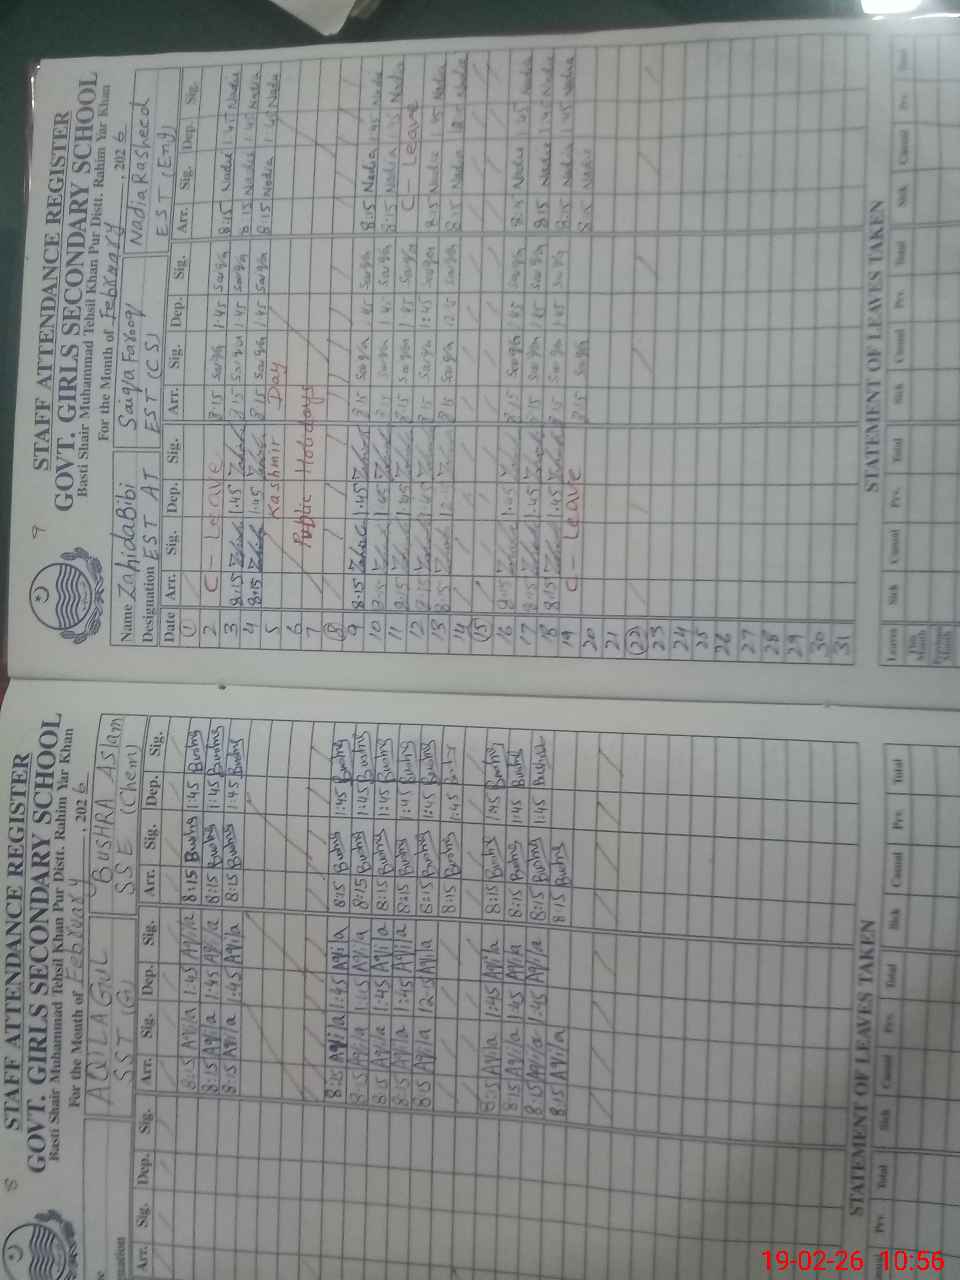 8
STAFF ATTENDANCE REGISTER
GOVT. GIRLS SECONDARY SCHOOL
Basti Shair Muhammad Tehsil Khan Pur Distt. Rahim Yar Khan
For the Month of February, 2026
AQILA GUL BUSHRA ASlam
SST (G) SSE (Chem)
Arr. Sig. Dep. Sig. Arr. Sig. Dep. Sig. Arr. Sig. Dep. Sig.
8:15 Aqila 1:45 Aqila 8:15 Bushra 1:45 Bushra
8:15 Aqila 1:45 Aqila 8:15 Bushra 1:45 Bushra
8:15 Aqila 1:45 Aqila 8:15 Bushra 1:45 Bushra
Aqila 1:45 Aqila 8:15 Bushra 1:45 Bushra
Aqila Aqila 8:15 Bushra 1:45 Bushra
8:15 Aqila 1:45 Aqila 8:15 Bushra 1:45 Bushra
8:15 Aqila 1:45 Aqila 8:15 Bushra 1:45 Bushra
Aqila 12:15 Aqila 8:15 Bushra 1:45 Bushra
8:15 Bushra 1:45
8:15 Aqila 1:45 Aqila 8:15 Bushra 1:45 Bushra
8:15 Aqila 1:45 Aqila 8:15 Bushra 1:45 Bushra
8:15 Aqila 1:45 Aqila 8:15 Bushra 1:45 Bushra
8:15 Aqila 8:15 Bushra
STATEMENT OF LEAVES TAKEN
Prv. Total Sick Casual Prv. Total Sick Casual Prv. Total
9
STAFF ATTENDANCE REGISTER
GOVT. GIRLS SECONDARY SCHOOL
Basti Shair Muhammad Tehsil Khan Pur Distt. Rahim Yar Khan
For the Month of February, 2026
Name Zahida Bibi Saiqa Farooq Nadia Rasheed
Designation EST AT EST (CS) EST (Eng)
Date Arr. Sig. Dep. Sig. Arr. Sig. Dep. Sig. Arr. Sig. Dep. Sig.
1
2 C - Leave 8:15 Saiqa 1:45 Saiqa 8:15 Nadia 1:45 Nadia
3 8:15 Zahida 1:45 Zahida 8:15 Saiqa 1:45 Saiqa 8:15 Nadia 1:45 Nadia
4 8:15 Zahida 1:45 Zahida 8:15 Saiqa 1:45 Saiqa 8:15 Nadia 1:45 Nadia
5 Kashmir Day
6
7 Public Holidays
8
9 8:15 Zahida 1:45 Zahida 8:15 Saiqa 1:45 Saiqa 8:15 Nadia 1:45 Nadia
10 8:15 Zahida 1:45 Zahida 8:15 Saiqa 1:45 Saiqa 8:15 Nadia 1:45 Nadia
11 8:15 Zahida 1:45 Zahida 8:15 Saiqa 1:45 Saiqa C - Leave
12 8:15 Zahida 1:45 Zahida 8:15 Saiqa 1:45 Saiqa 8:15 Nadia 1:45 Nadia
13 8:15 Zahida 12:15 Zahida 8:15 Saiqa 12:15 Saiqa 8:15 Nadia Nadia
14
15
16 8:15 Zahida 1:45 Zahida 8:15 Saiqa 1:45 Saiqa 8:15 Nadia 1:45 Nadia
17 8:15 Zahida 1:45 Zahida 8:15 Saiqa 1:45 Saiqa 8:15 Nadia 1:45 Nadia
18 8:15 Zahida 1:45 Zahida 8:15 Saiqa 1:45 Saiqa 8:15 Nadia 1:45 Nadia
19 C - Leave 8:15 Saiqa 8:15 Nadia
20
21
22
23
24
25
26
27
28
29
30
31
STATEMENT OF LEAVES TAKEN
Leaves Sick Casual Prv. Total Sick Casual Prv. Total Sick Casual Prv. Total
This Month
Previous Month
19-02-26 10:56